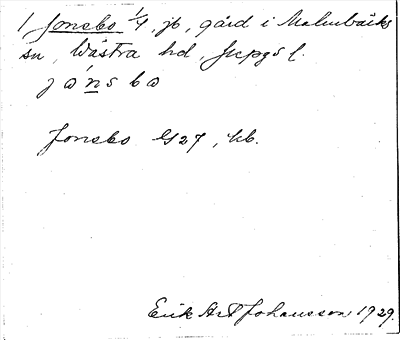 1 Jonsbo 1/4, jb, gård i Malmbäcks
sn, Västra hd, Jkpgs l.
Jonsbo 27, kb.
Erik Axel Johansson 1929.